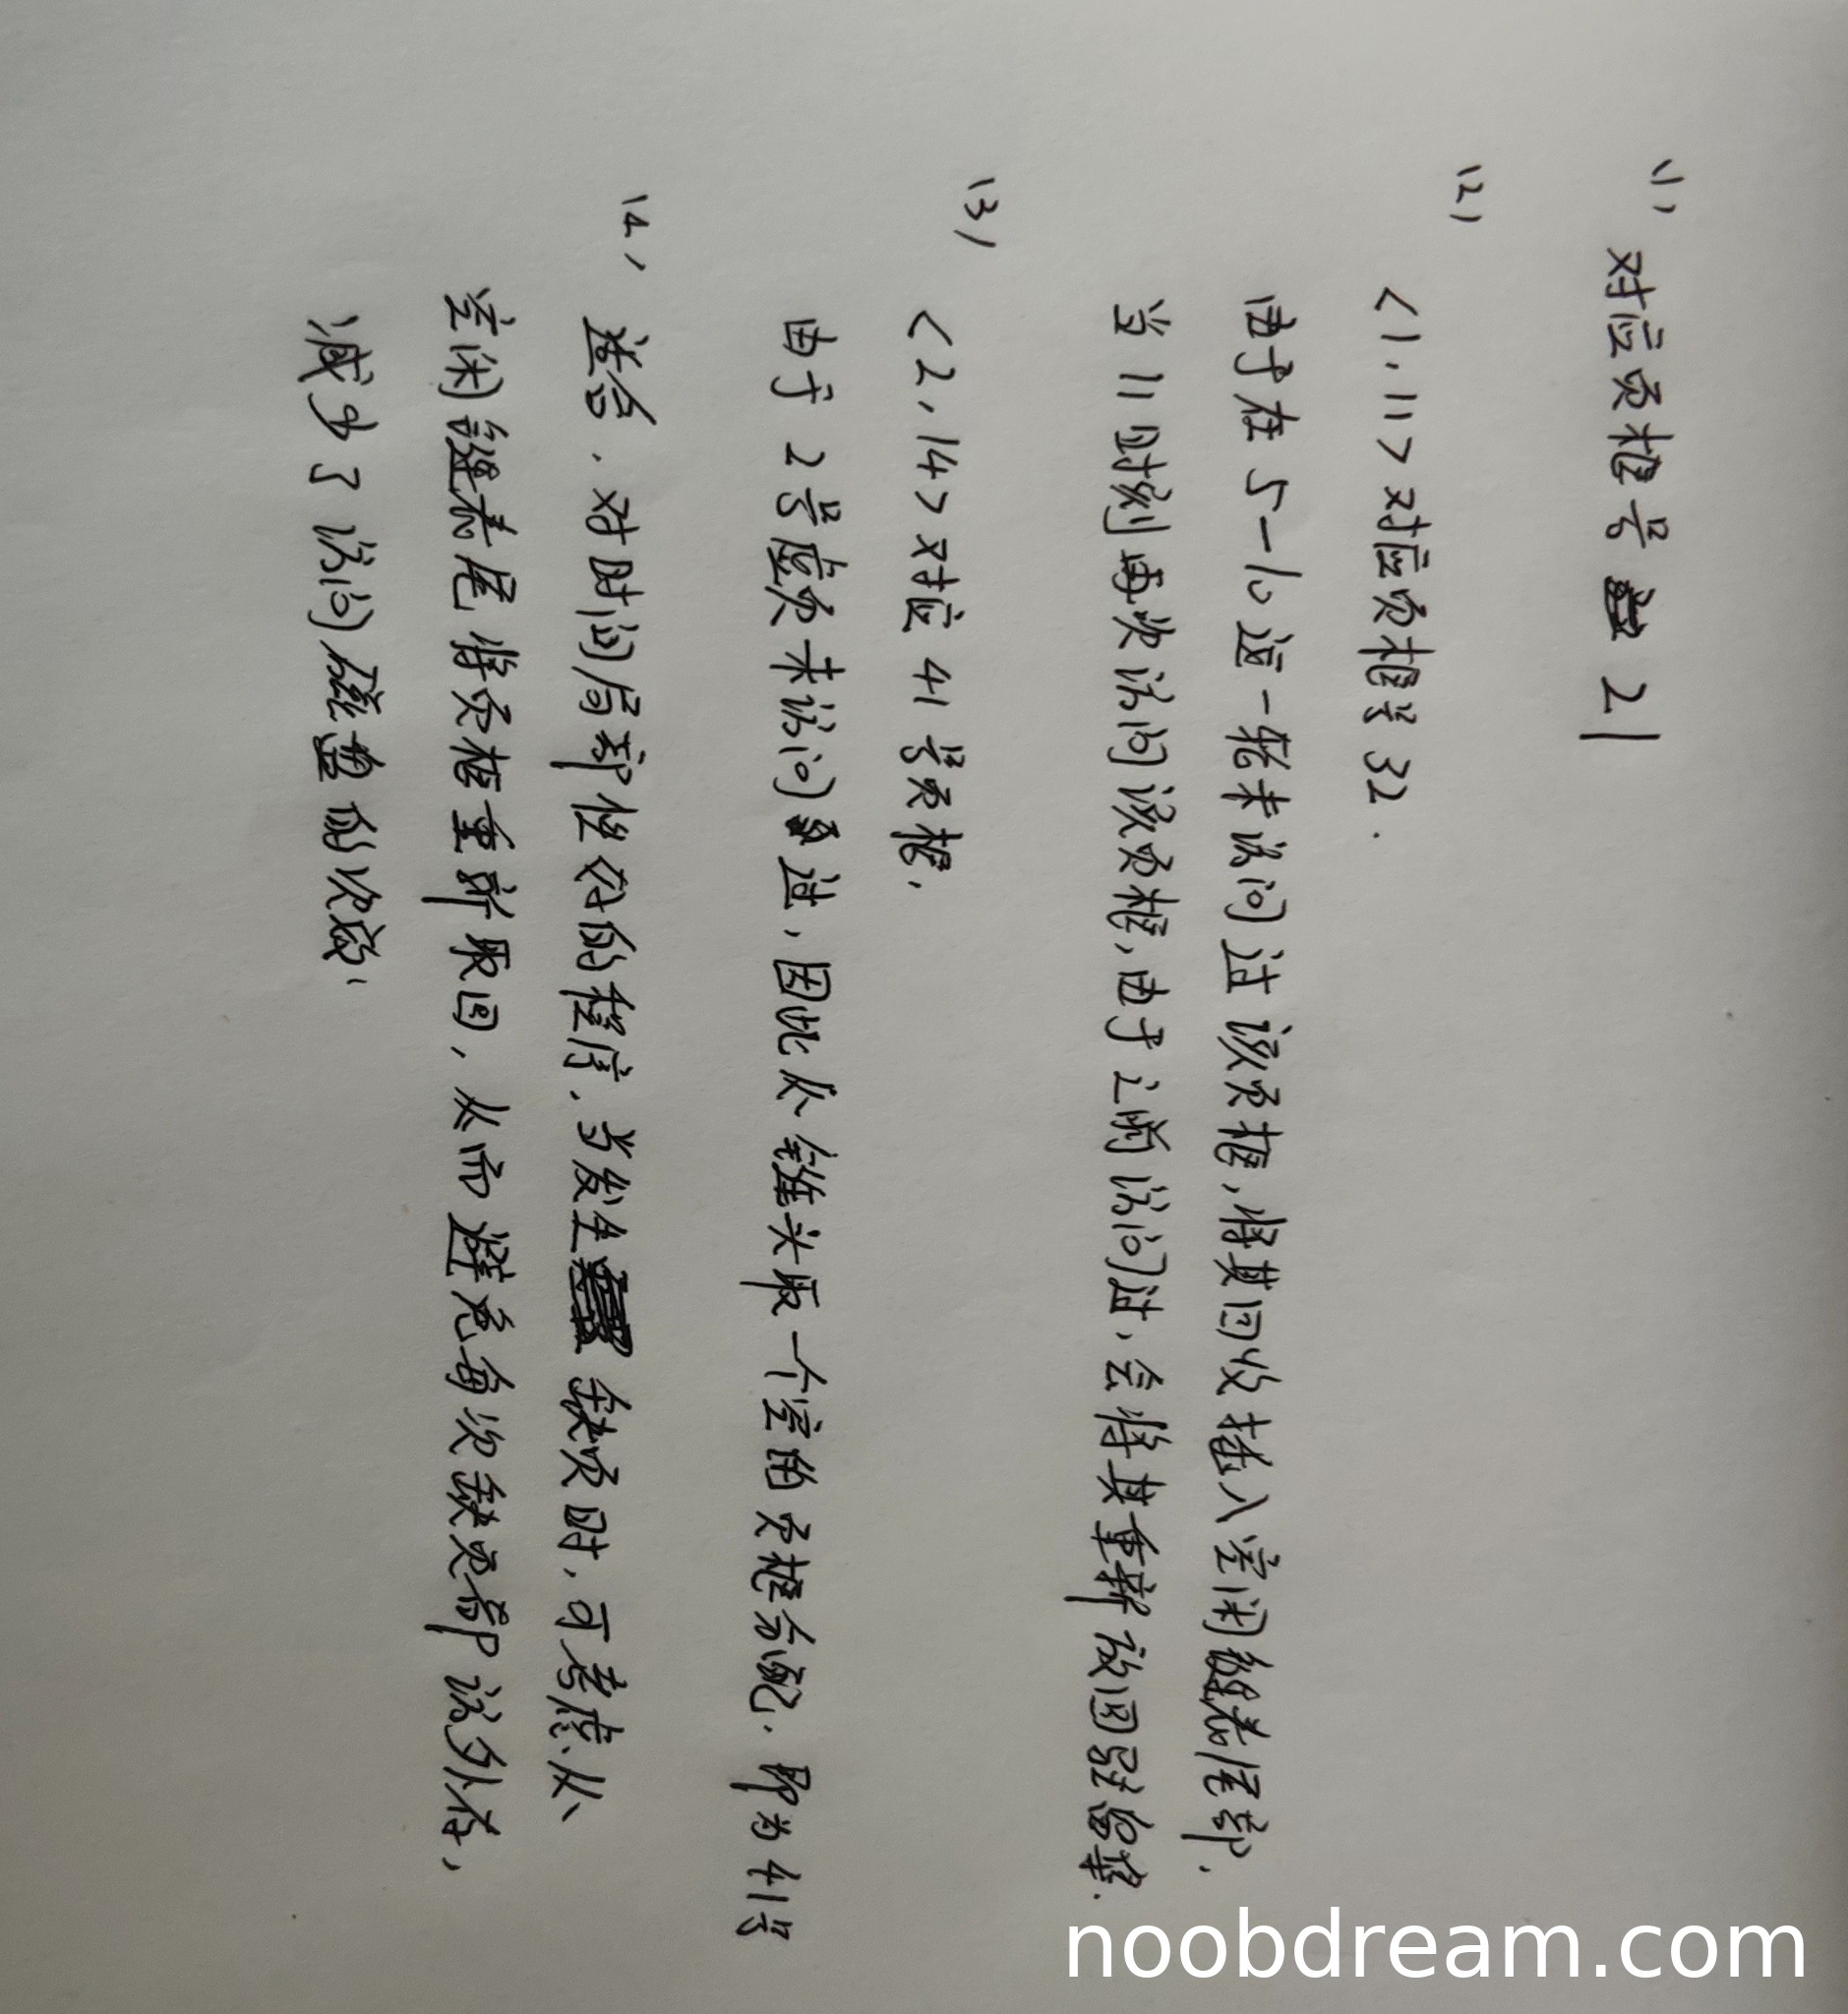 (1) 对应页框号 21
(2) <1,11>对应页框号32.
由于在5-10这一轮未访问过该页框,将其回收插入空闲链表尾部.
当11时刻再次访问该页框,由于之前访问过,会将其重新放回驻留集.
(3) <2,14>对应41号页框.
由于2号虚页未访问过,因此从链头取一个空的页框分配.即为41号
(4) 适合.对时间局部性好的程序.当发生缺页时,可考虑从
空闲链表尾将页框重新取回,从而避免每次缺页都访外存,
减少了访问磁盘的次数.
noobdream.com